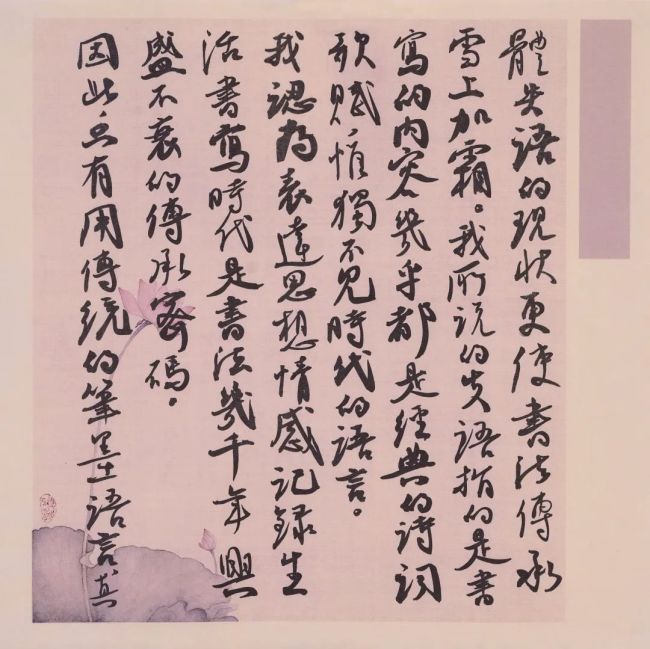 體失語的現狀更使書法傳承
雪上加霜。我所說的失語指的是書
寫的内容幾乎都是經典的詩詞
歌賦，惟獨不見時代的語言。
我認為表達思想情感記錄生
活書寫時代是書法幾千年興
盛不衰的傳承密碼。
因此，只有用傳統的筆墨語言真